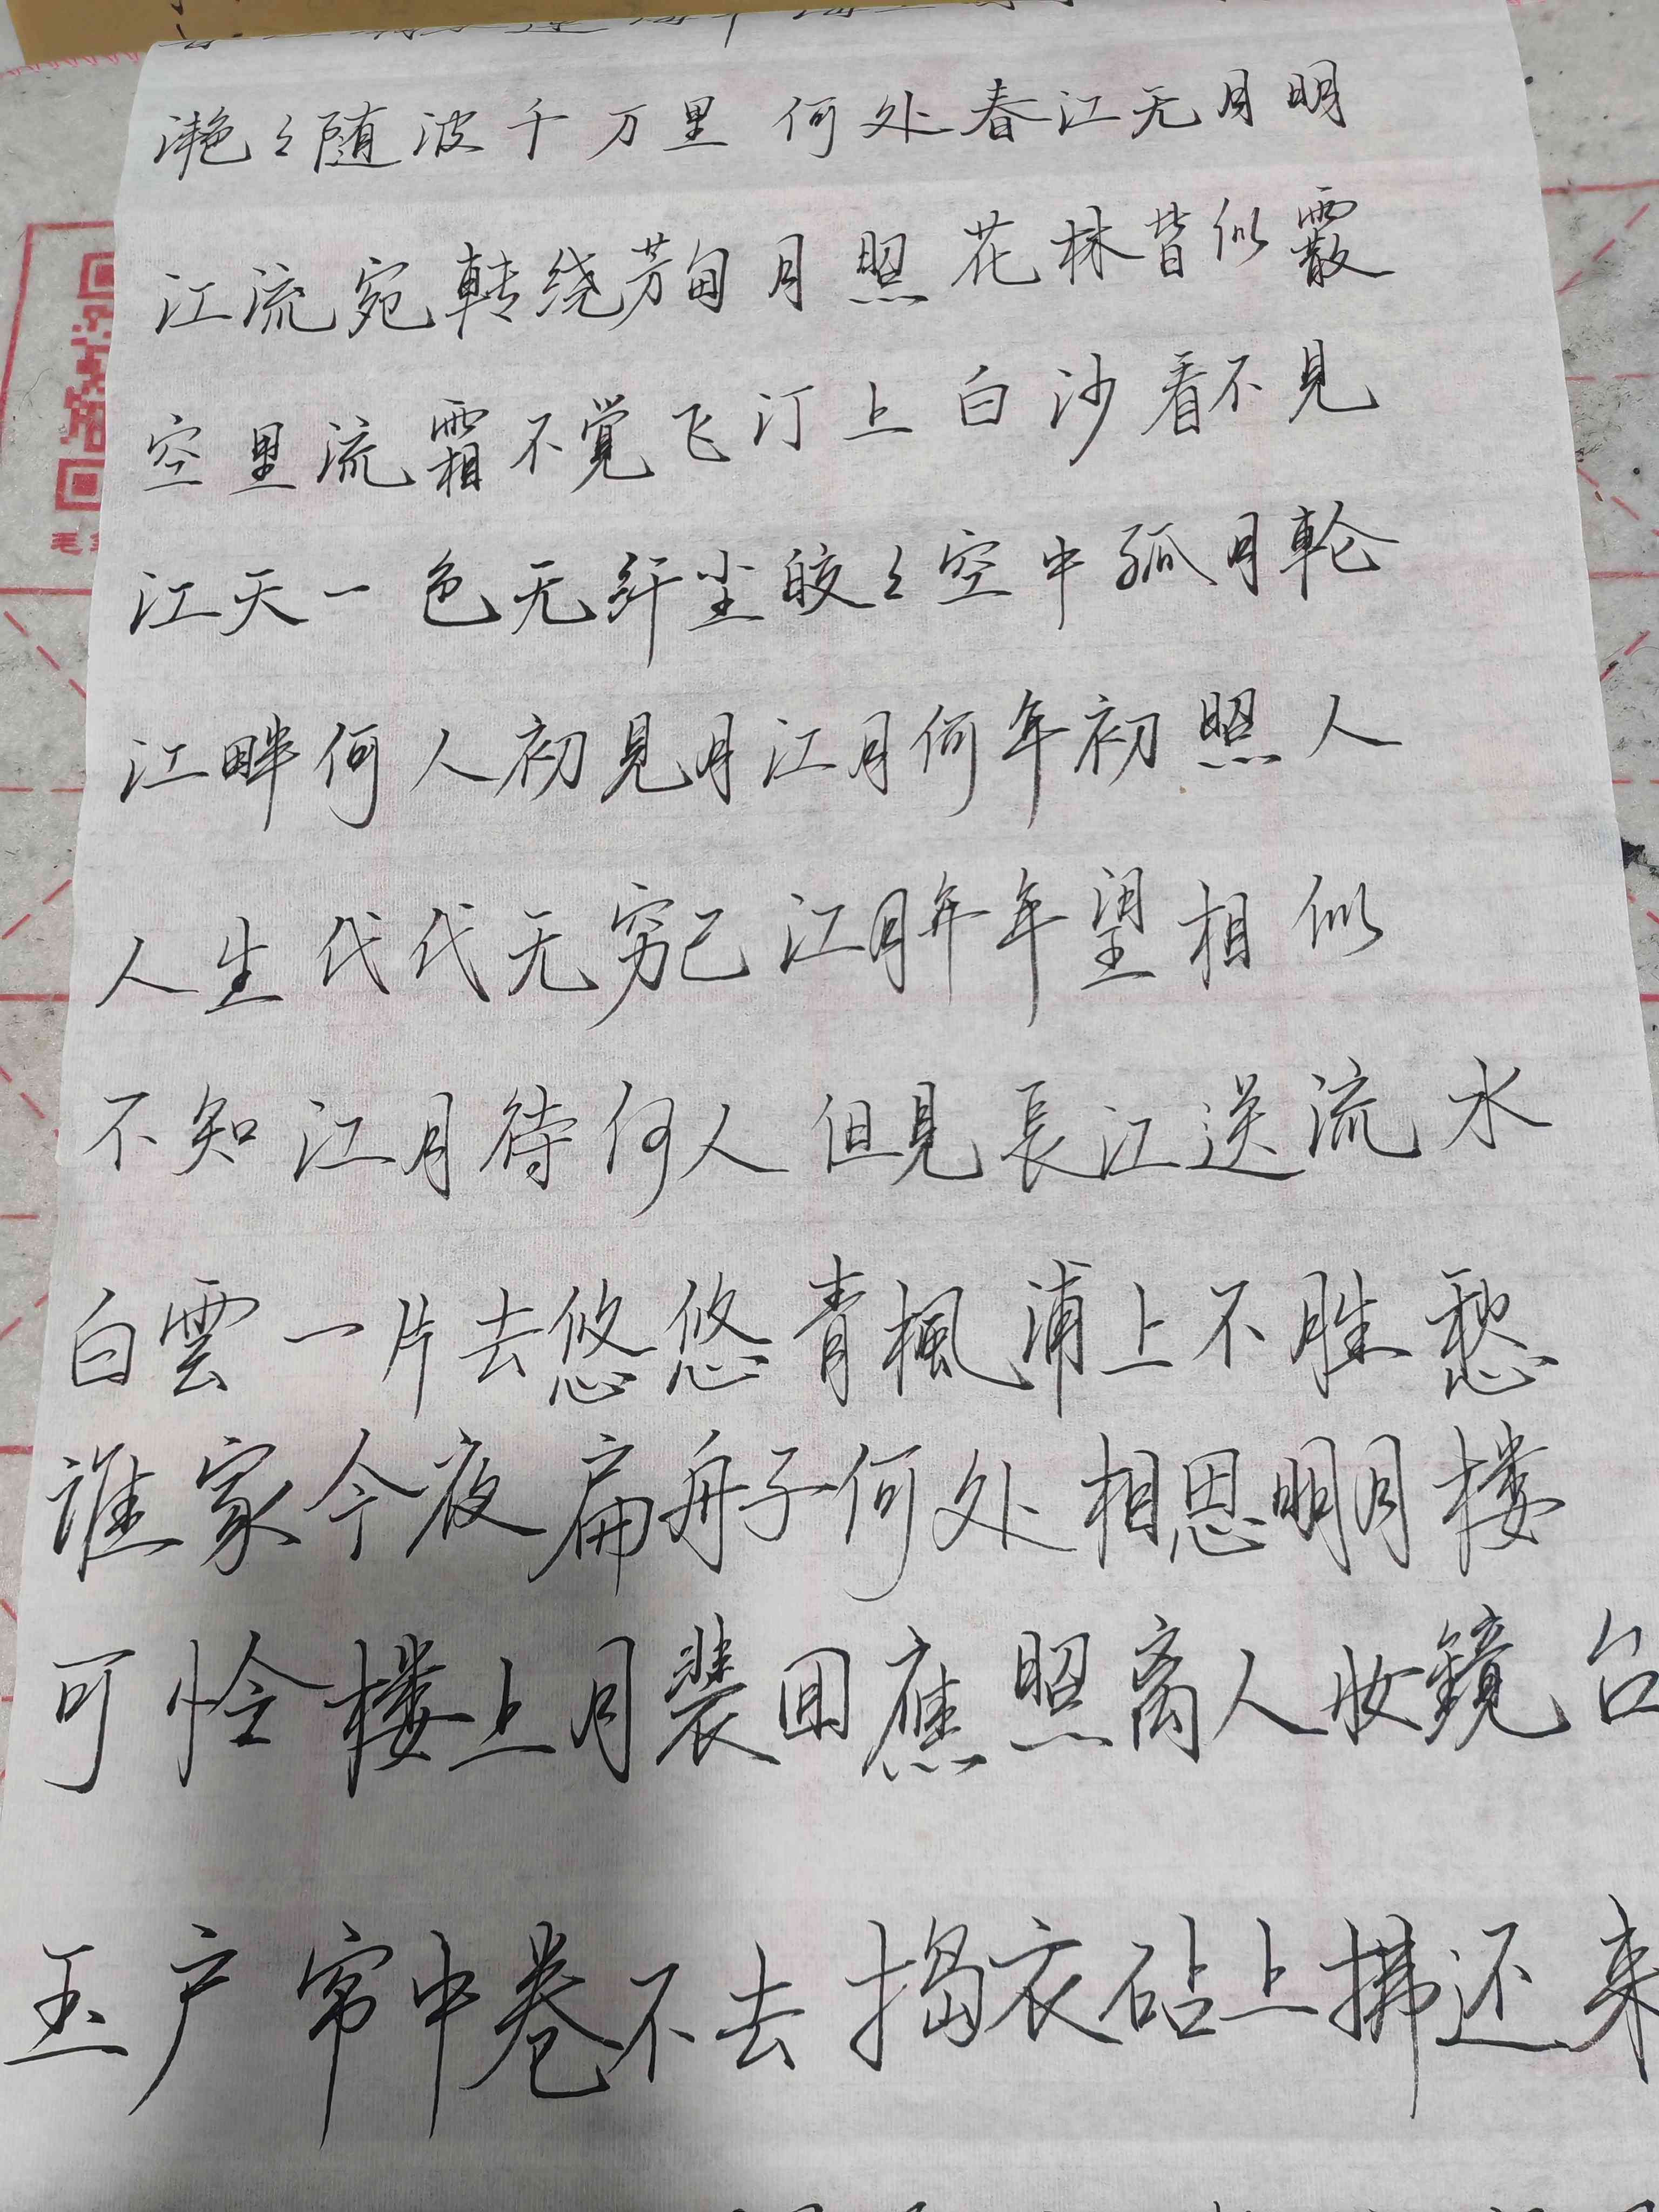 滟々随波千万里 何处春江无月明
江流宛轉绕芳甸月照花林皆似霰
空里流霜不覚飞汀上白沙看不見
江天一色无纤尘皎々空中孤月輪
江畔何人初見月江月何年初照人
人生代代无穷已江月年年望相似
不知江月待何人但見長江送流水
白雲一片去悠悠青楓浦上不胜愁
谁家今夜扁舟子何处相思明月楼
可怜楼上月裴回應照离人妆鏡台
玉户帘中卷不去捣衣砧上拂还来